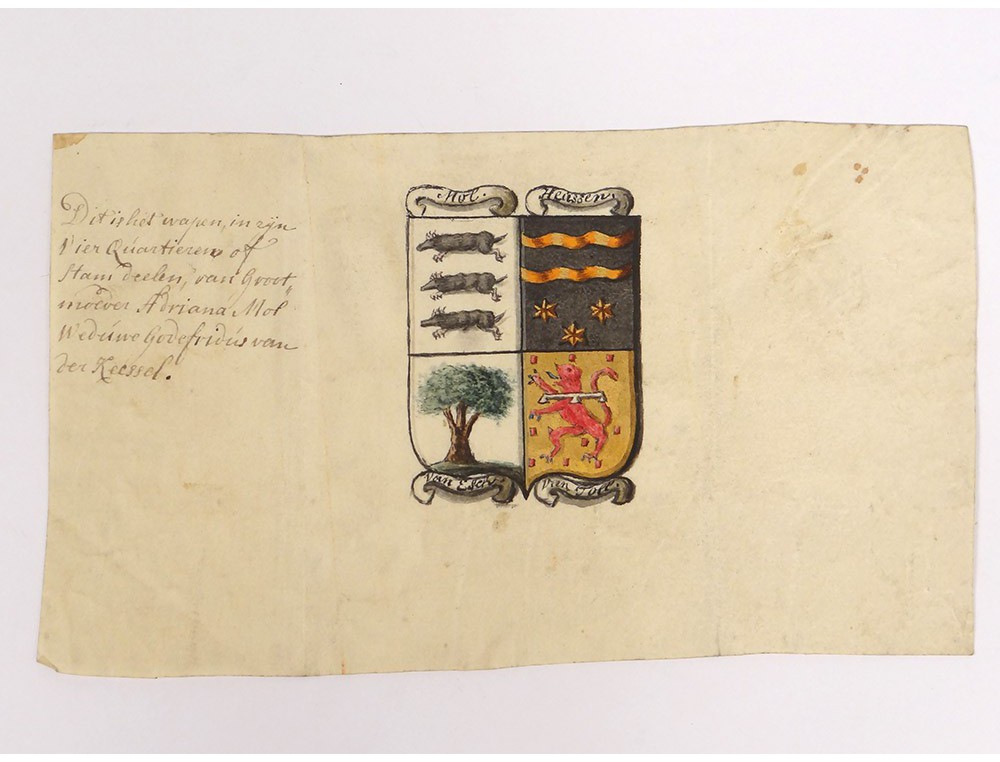 Dit is het wapen, in zyn
Vier Quartieren of
Stam deelen, van Groot„
moeder Adriana Mol
Weduwe Godefridús van
der Keessel.
Mol.
Heussen.
Van Esch.
Van Toel.